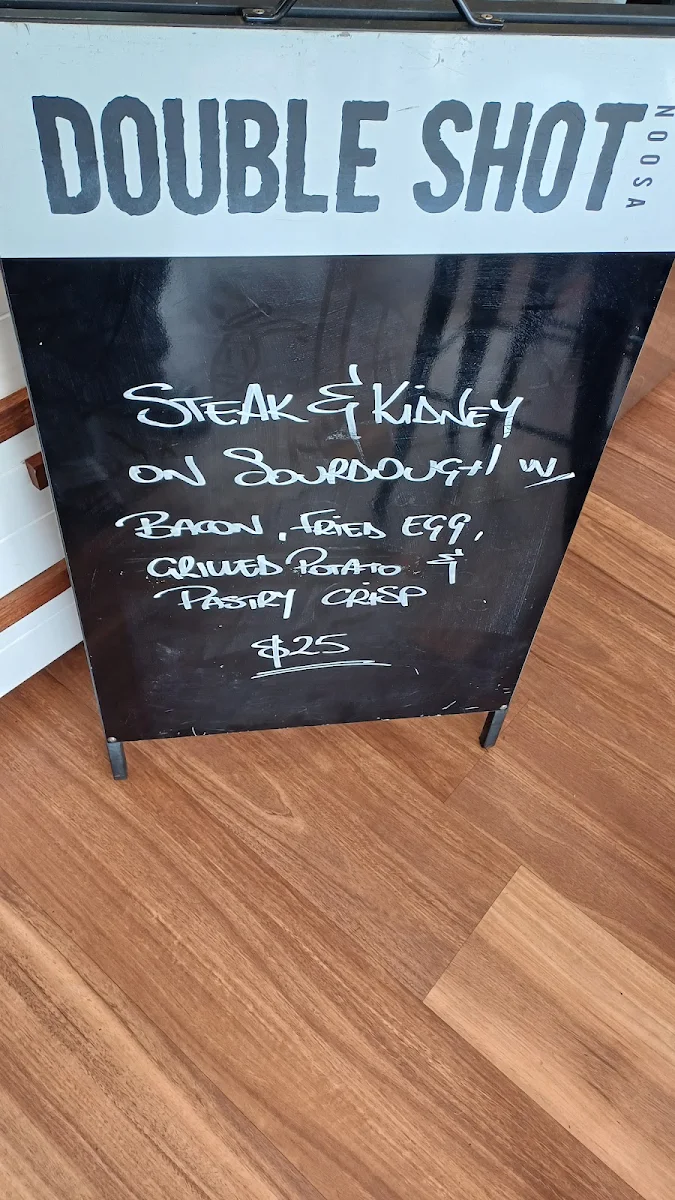 DOUBLE SHOT NOOSA
STEAK & KIDNEY
ON SOURDOUGH W/
BACON, FRIED EGG,
GRILLED POTATO &
PASTRY CRISP
$25